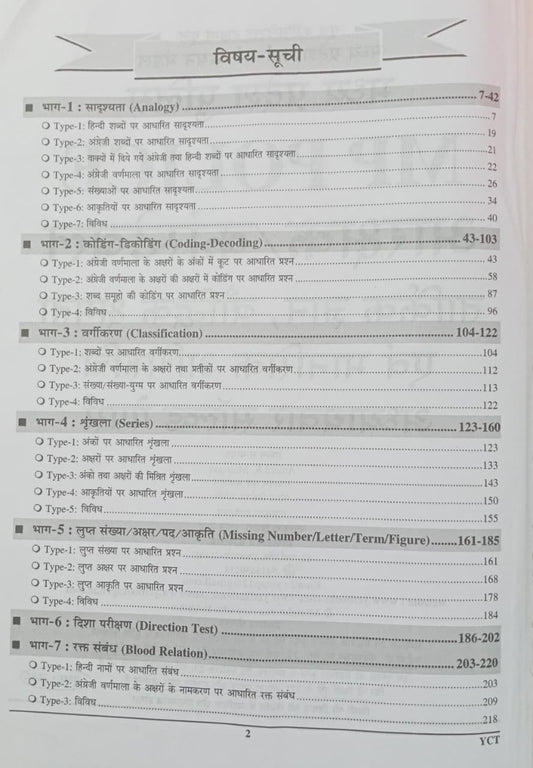 विषय-सूची
■ भाग-1 : सादृश्यता (Analogy) 7-42
❍ Type-1: हिन्दी शब्दों पर आधारित सादृश्यता 7
❍ Type-2: अंग्रेजी शब्दों पर आधारित सादृश्यता 19
❍ Type-3: वाक्यों में दिये गये अंग्रेजी तथा हिन्दी शब्दों पर आधारित सादृश्यता 21
❍ Type-4: अंग्रेजी वर्णमाला पर आधारित सादृश्यता 22
❍ Type-5: संख्याओं पर आधारित सादृश्यता 26
❍ Type-6: आकृतियों पर आधारित सादृश्यता 34
❍ Type-7: विविध 40
■ भाग-2 : कोडिंग-डिकोडिंग (Coding-Decoding) 43-103
❍ Type-1: अंग्रेजी वर्णमाला के अक्षरों के अंकों में कूट पर आधारित प्रश्न 43
❍ Type-2: अंग्रेजी वर्णमाला के अक्षरों की अक्षरों में कोडिंग पर आधारित प्रश्न 58
❍ Type-3: शब्द समूहों की कोडिंग पर आधारित प्रश्न 87
❍ Type-4: विविध 96
■ भाग-3 : वर्गीकरण (Classification) 104-122
❍ Type-1: शब्दों पर आधारित वर्गीकरण 104
❍ Type-2: अंग्रेजी वर्णमाला के अक्षरों तथा प्रतीकों पर आधारित वर्गीकरण 112
❍ Type-3: संख्या/संख्या-युग्म पर आधारित वर्गीकरण 113
❍ Type-4: विविध 122
■ भाग-4 : शृंखला (Series) 123-160
❍ Type-1: अंकों पर आधारित शृंखला 123
❍ Type-2: अक्षरों पर आधारित शृंखला 133
❍ Type-3: अंको तथा अक्षरों की मिश्रित शृंखला 143
❍ Type-4: आकृतियों पर आधारित शृंखला 150
❍ Type-5: विविध 155
■ भाग-5 : लुप्त संख्या/अक्षर/पद/आकृति (Missing Number/Letter/Term/Figure) 161-185
❍ Type-1: लुप्त संख्या पर आधारित प्रश्न 161
❍ Type-2: लुप्त अक्षर पर आधारित प्रश्न 168
❍ Type-3: लुप्त आकृति पर आधारित प्रश्न 178
❍ Type-4: विविध 184
■ भाग-6 : दिशा परीक्षण (Direction Test) 186-202
■ भाग-7 : रक्त संबंध (Blood Relation) 203-220
❍ Type-1: हिन्दी नामों पर आधारित संबंध 203
❍ Type-2: अंग्रेजी वर्णमाला के अक्षरों के नामकरण पर आधारित रक्त संबंध 209
❍ Type-3: विविध 218
2
YCT